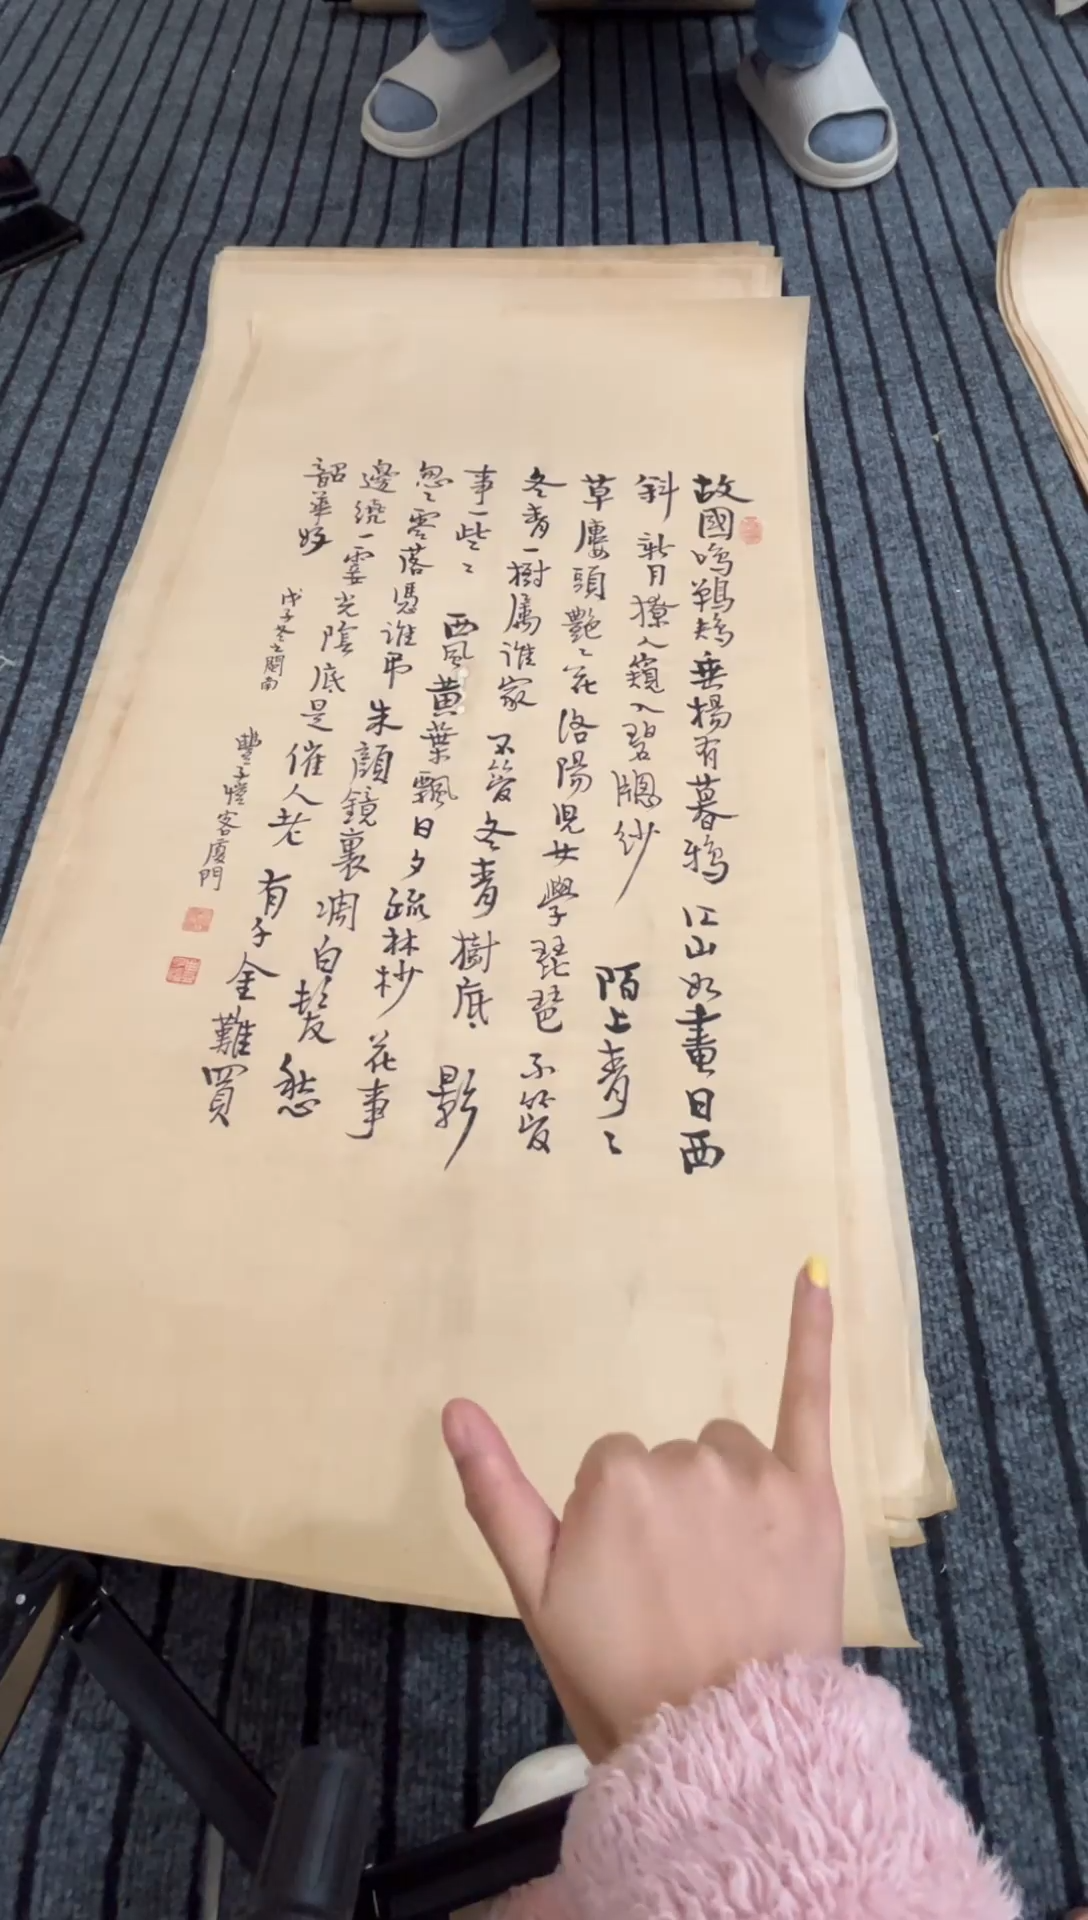 故國鳴鵜鴂垂楊有暮鴉江山如畫日西
斜新月撩人窺入碧牕紗陌上青〻
草廔頭艷〻花洛陽兒女學琵琶不管
冬青一樹屬誰家不管冬青樹底影
事一些〻西風黄葉飄日夕疏林杪花事
忽〻零落憑誰弔朱顏鏡裏凋白髮愁
邊繞一霎光陰底是催人老有千金難買
韶華好
戊子冬之閩南
豐子愷客廈門